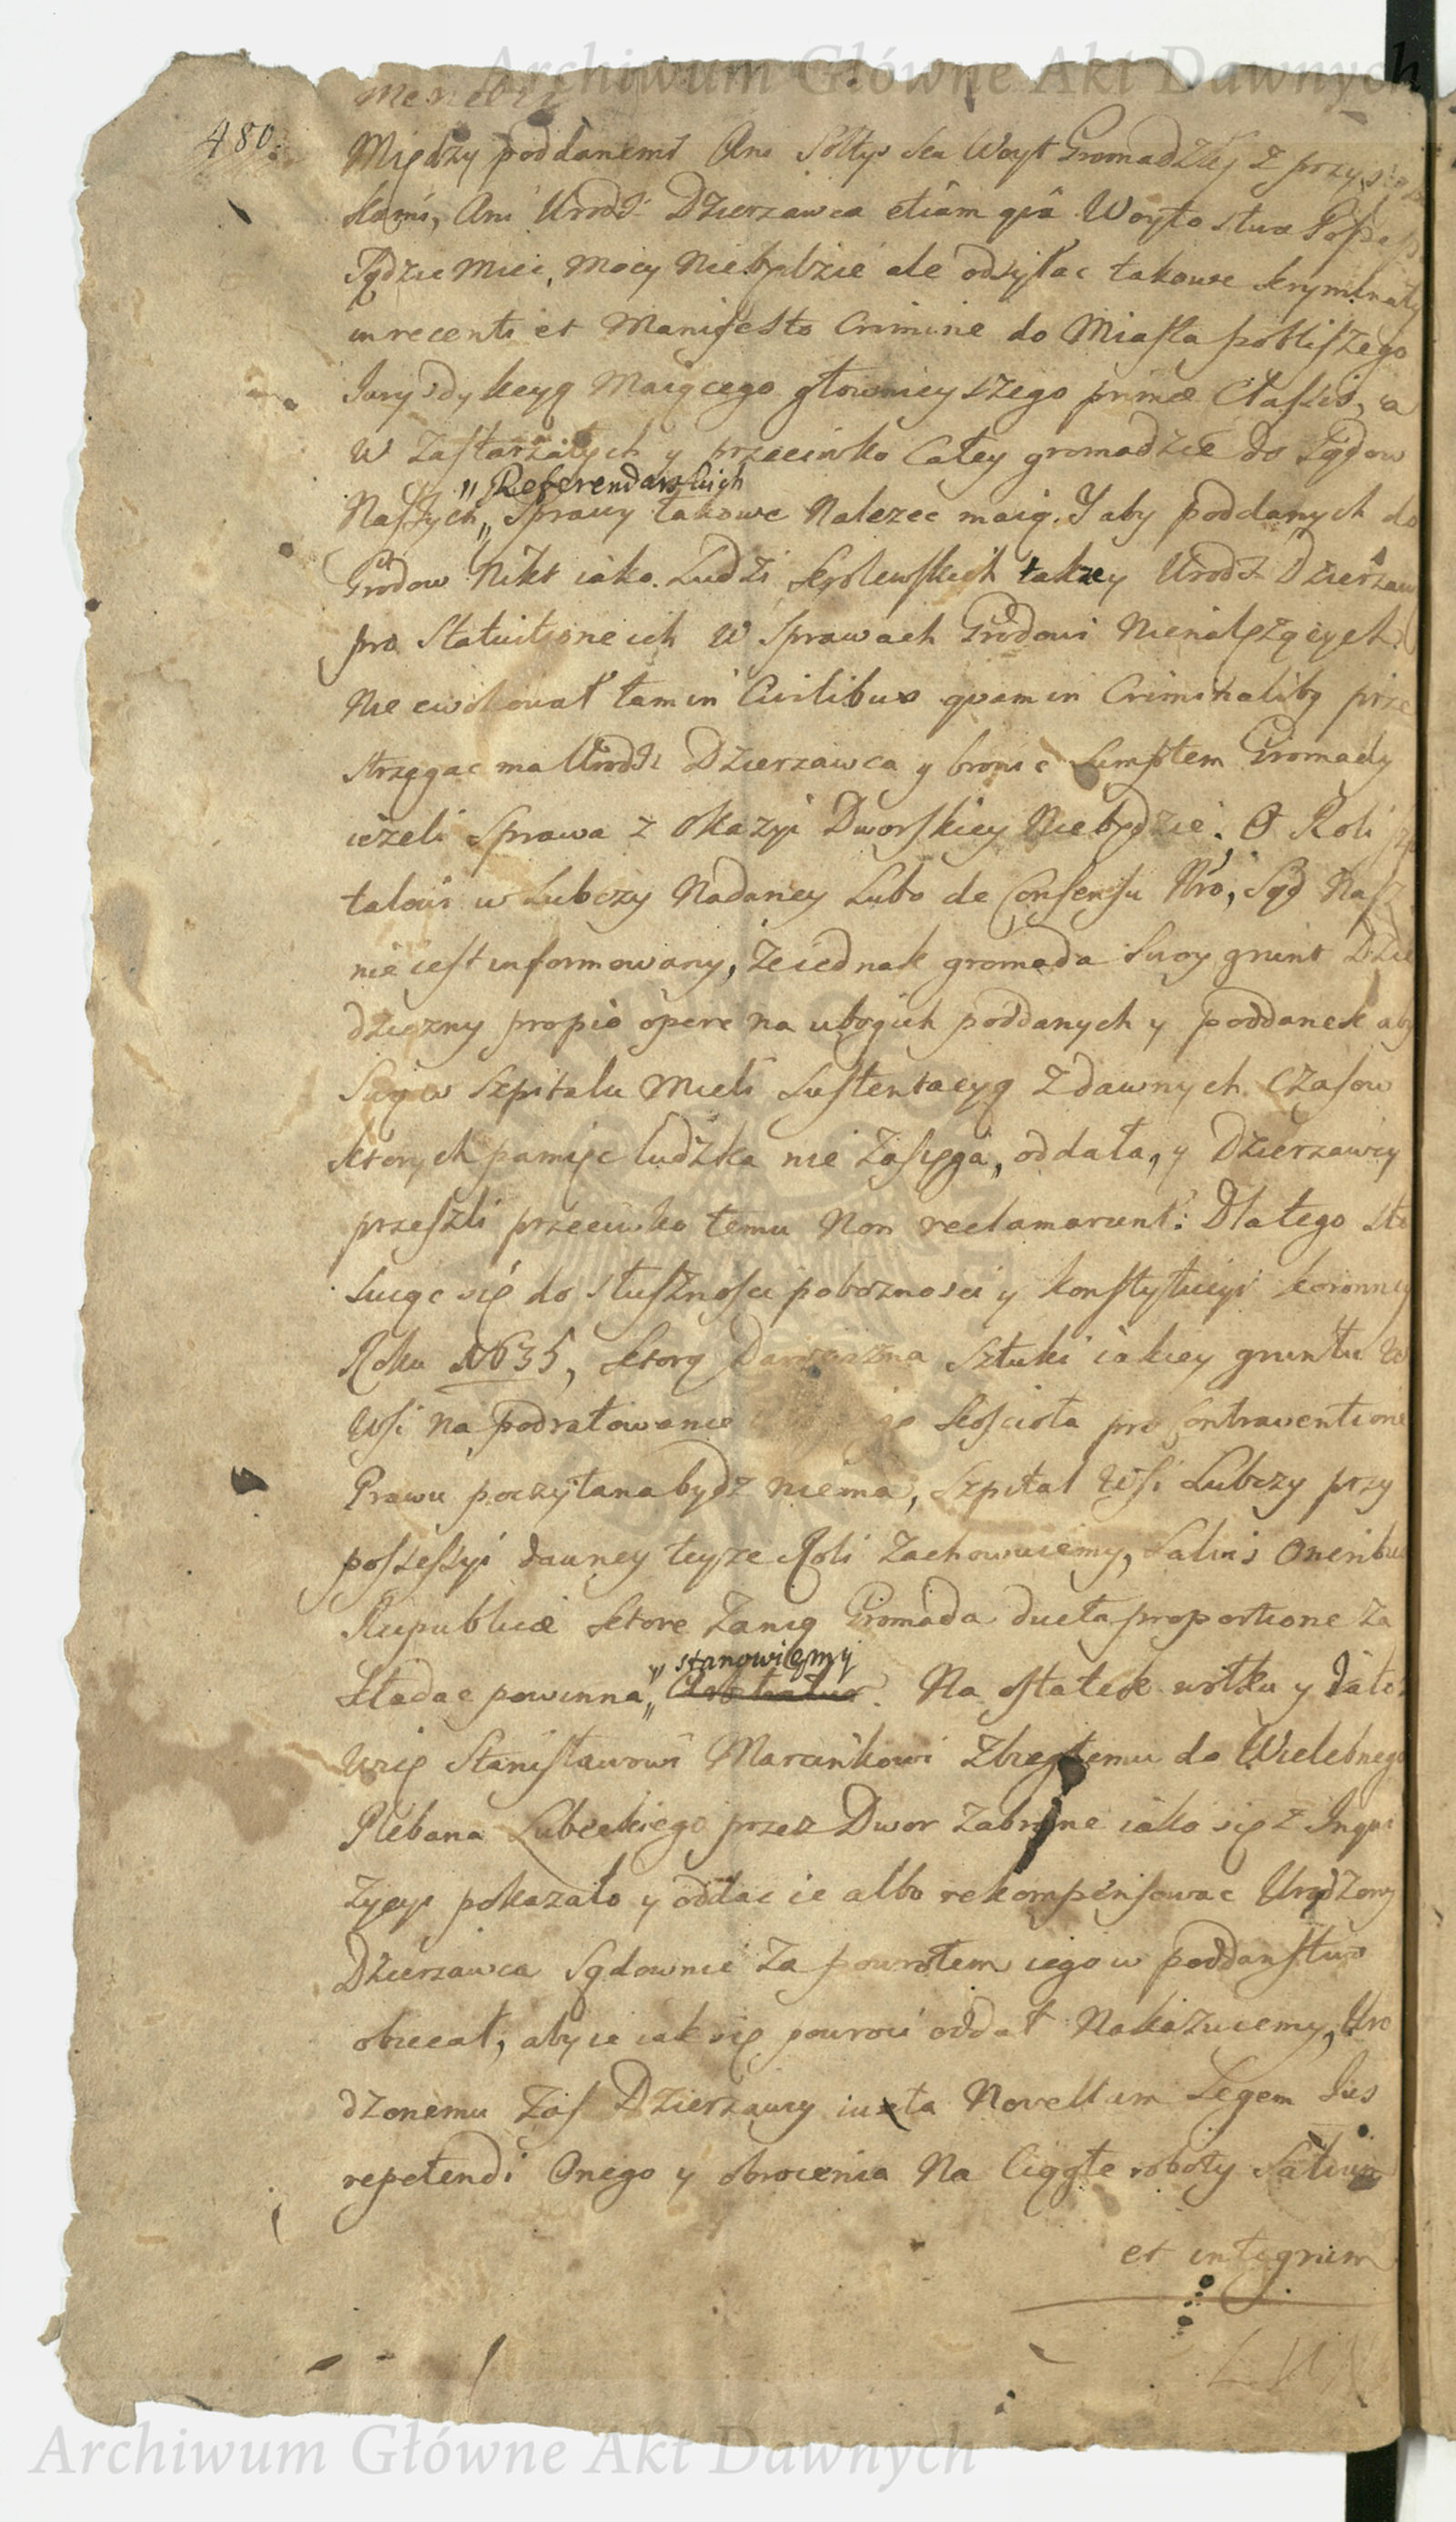 Archiwum Główne Akt Dawnych
480.
Między poddanemi Ani Sołtys seu Woyt Gromadzkiej z przysię
słami, Ani Urodz: Dzierzawca etiam qua Woytostwa
Sądzic Miec, Mocy Niebędzie ale odsyłac takowe kryminały
in recenti et Manifesto Crimine do Miasta poblisszego
Jurysdykcyą Maiącego głownieyszego primæ Classis, a
w zastarzałych y przeciwko Całey gromadzie do Sądow
„Referendarskich
Naszych„ Sprawy takowe Nalezec maią. Y aby poddanych do
Grodow Nikt iako Ludzi Krolewskich takzey Urodz Dzierzaw
pro Statuitione ich w Sprawach Grodowi Nienalezących
Nie ewokował tam in Civilibus quam in Criminalibg prze
strzegac ma Urodz Dzierzawca y bronic Sumptem Gromady
iezeli Sprawa z Okazyi Dworskiey Niebędzie. O Roli Sz
talowi w Lubczy Nadaney Lubo de Consensu Nro, Sąd Nasz
nie iest informowany, Ze iednak gromada Swoy grunt Dzie
dziczny propio opere na ubogich poddanych y poddanek aby
Swą w Szpitalu Mieli Sustentacyą Zdawnych Czasow
ktorych pamięc ludzka nie Zasięga, oddała, y Dzierzawcy
przeszli przeciwko temu Non reclamarunt: Dlatego sto
suiąc się do słusznosci poboznosci y konstytucyi koronney
Roku 1635, ktorą Darowizna Sztuki iakiey gruntu w
Wsi na podratowanie Koscioła pro Contraventione
Prawu poczytana bydz niema, Szpital Wsi Lubczy przy
possessyi dawney teyze Roli Zachowuiemy, Salvis Oneribus
Reipublicæ ktore Zanię Gromada ducta proportione Za
„stanowiemy
kładac powinna„ . Na ostatek
Stanisławowi Marcinkowi Zbiegłemu do Wielebnego
Plebana Lubeckiego przez Dwor Zabrane iako się z Inqui
zycyi pokazało y oddac ie albo rekompensowac Urodzony
Dzierzawca Sądownie Za powrotem iego w poddanstwo
obiecał, aby ie iak się powroci oddał Nakazuiemy, Uro
dzonemu Zas Dzierzawcy iuxta Novellam Legem Jus
repetendi Onego y obrocenia Na Ciągłe roboty Salvum
et integrum
Archiwum Główne Akt Dawnych